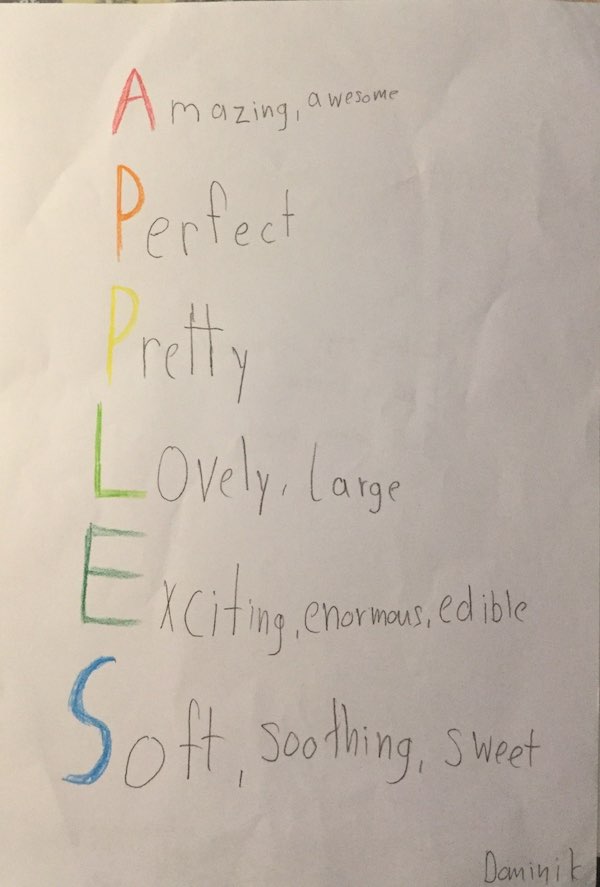 Amazing, awesome
Perfect
Pretty
Lovely, large
Exciting, enormous, edible
Soft, soothing, sweet
Dominik